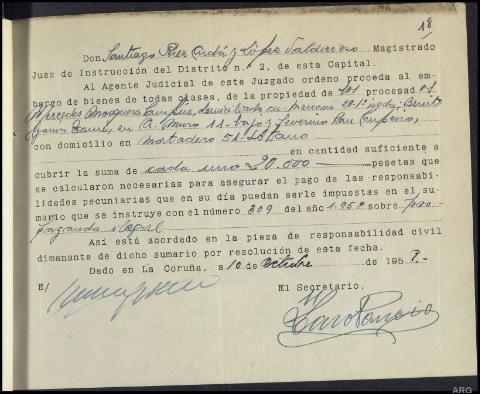 18
Don Santiago Pérez Ardá y López Valdivieso Magistrado
Juez de Instrucción del Distrito n.º 2, de esta Capital.
Al Agente Judicial de este Juzgado ordeno proceda al em-
bargo de bienes de todas clases, de la propiedad de los procesad os
Mercedes domiciliada en Marconi
en 11-bajo y Severino
con domicilio en Matadero 51-
en cantidad suficiente a
cubrir la suma de cada uno 20.000 pesetas que
se calcularon necesarias para asegurar el pago de las responsabi-
lidades pecuniarias que en su día puedan serle impuestas en el su-
mario que se instruye con el número 309 del año 1.95 sobre pro-
paganda ilegal
Así está acordado en la pieza de responsabilidad civil
dimanante de dicho sumario por resolución de esta fecha.
Dado en La Coruña, a 10 de octubre de 195
E/
El Secretario,
ARG